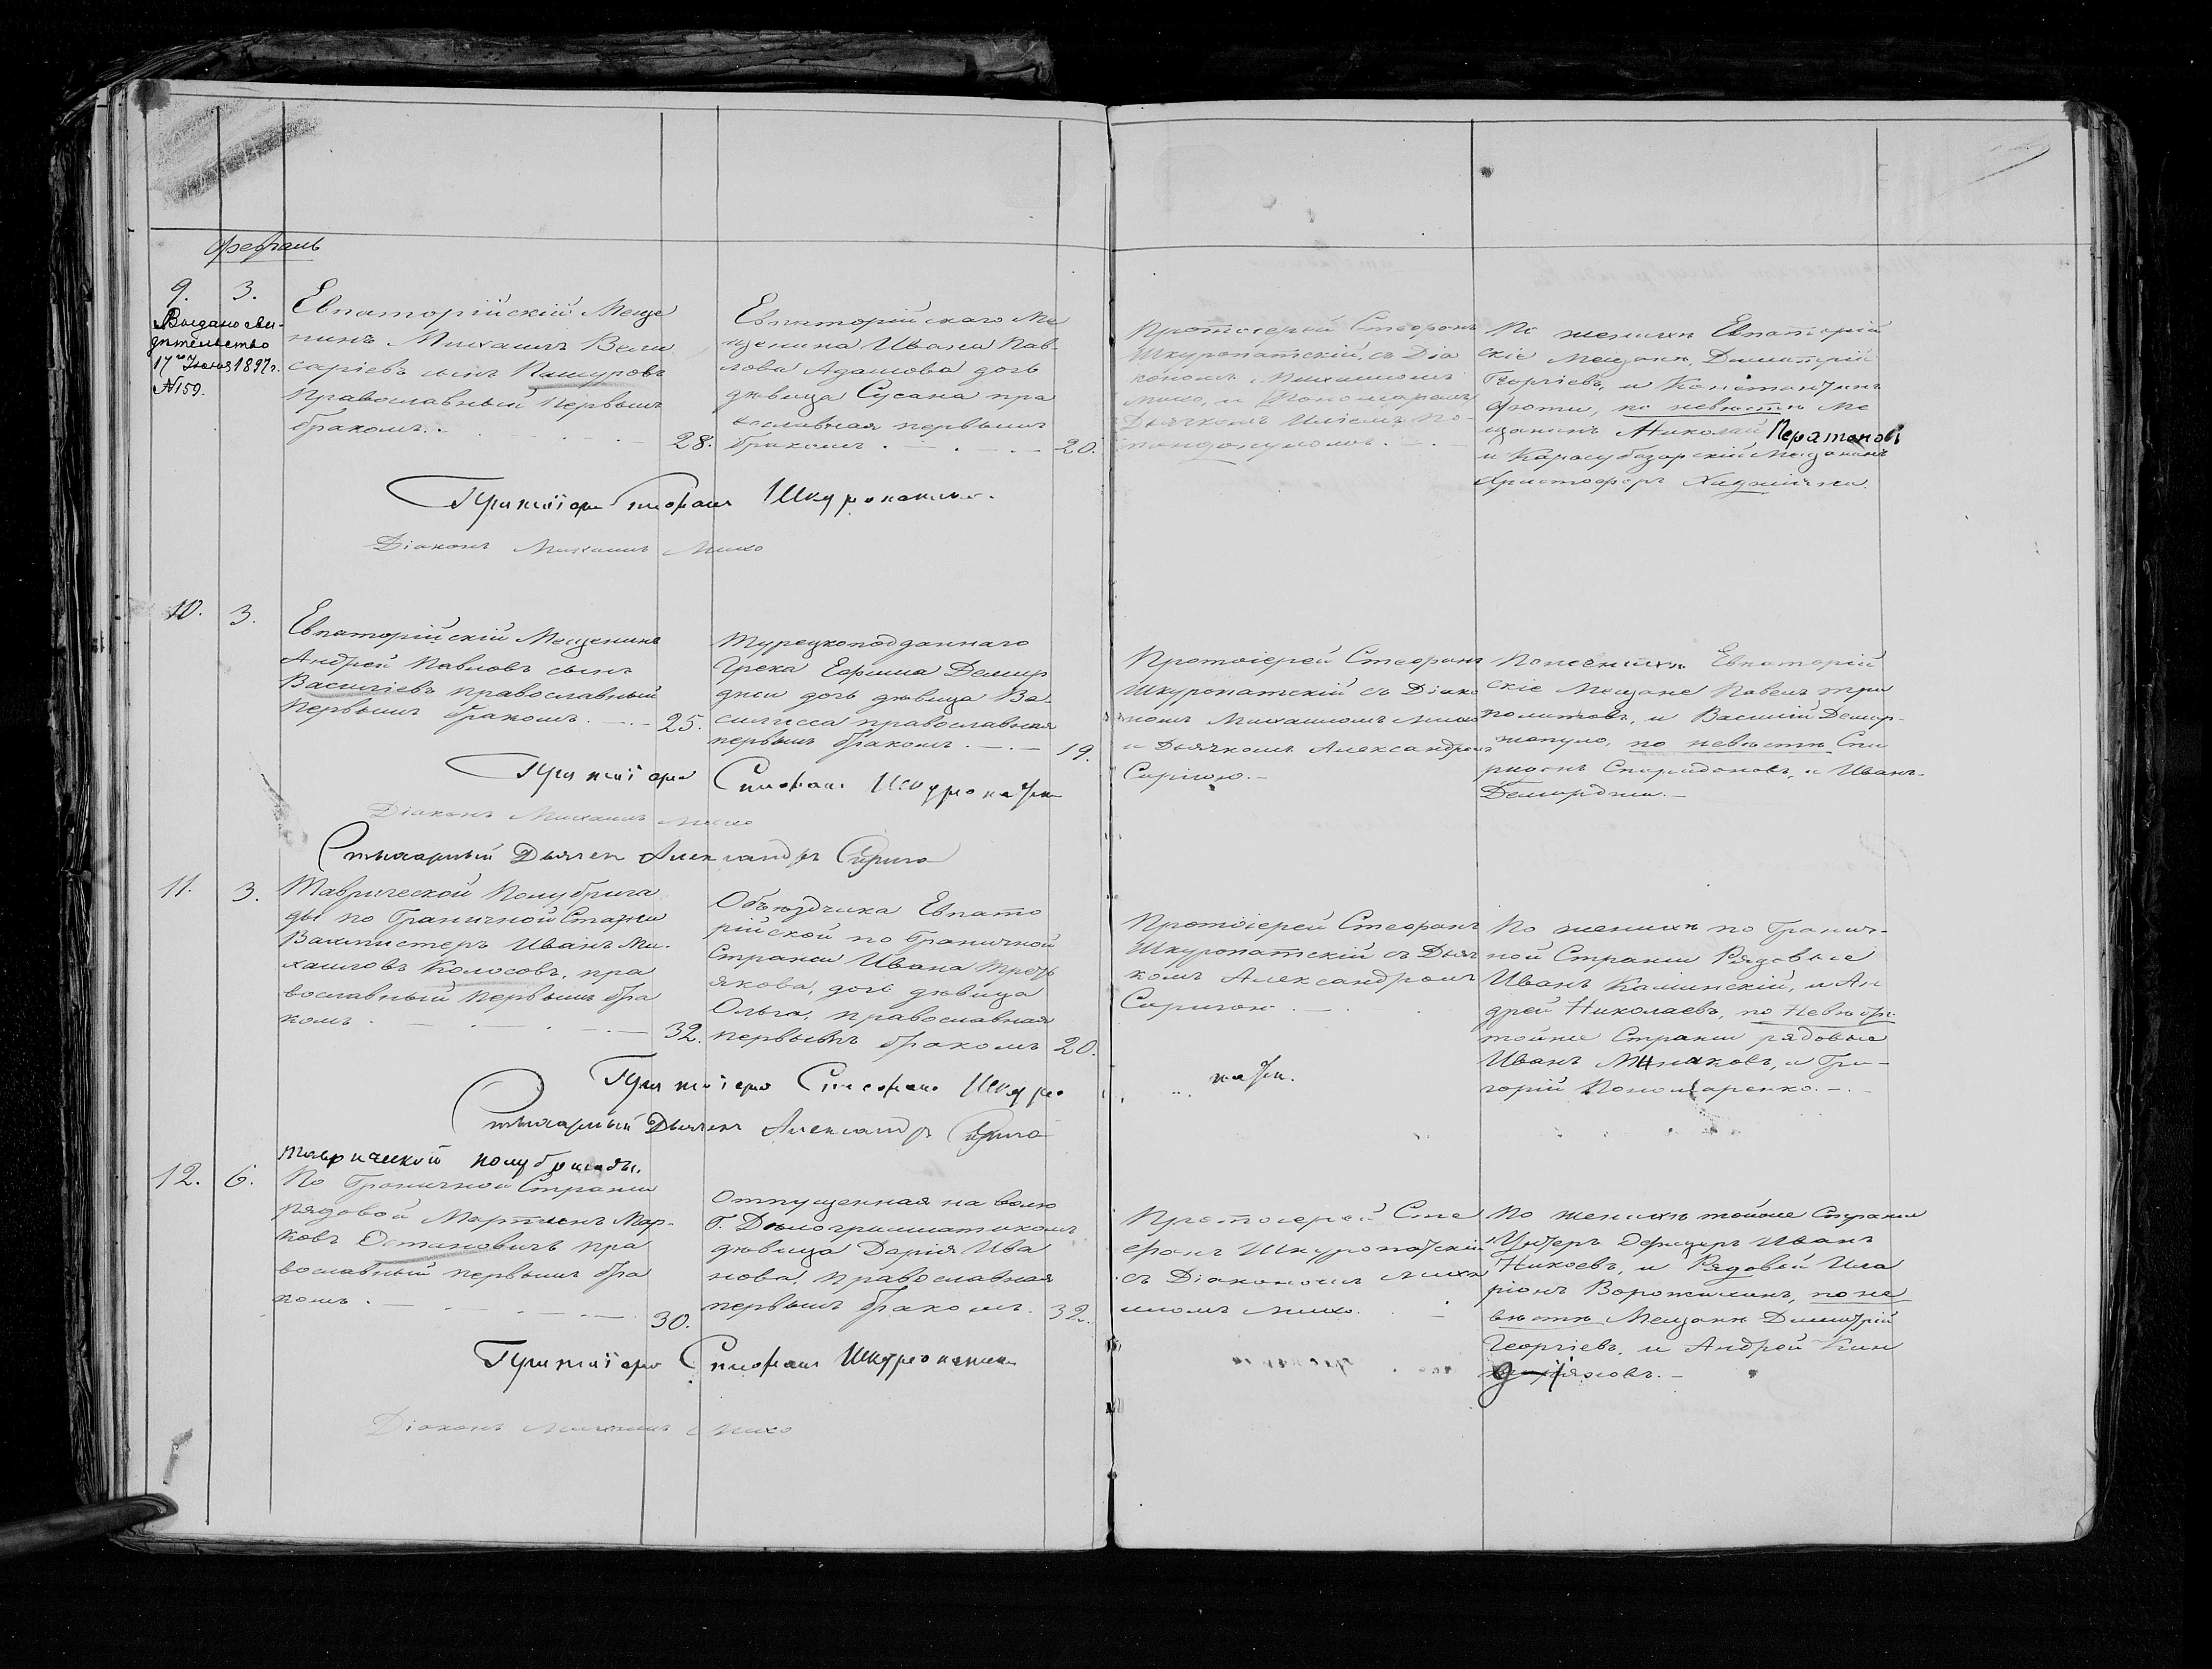 Февраль
9. 3.
Выдано сви-
дѣтельство
17го Іюня 1897 г.
№ 159.
Евпаторійскій Меще
нинъ Михаилъ Вели
саріевъ сынъ Пашуровъ
Православный первымъ
бракомъ. 28.
Евпаторійскаго Ме
щенина Ивана Пав-
лова Адамова дочь
дѣвица Сусана пра
вославная первымъ
бракомъ. 20.
Протоіерей Стефанъ
Шкуропатскій, съ Діа
кономъ Михаиломъ
Михо, и Пономаремъ
Дьячкомъ
По женихѣ Евпаторій
скіе Мещане, Димитрій
Георгіевъ, и Константинъ
Фоти, по невѣстѣ Ме
щанинъ Николай
и Карасубазарскій Мещанинъ
Христофоръ
Протоіерей Стефанъ Шкуропатскій
Діаконъ Михаилъ Михо
10. 3.
Евпаторійскій Мещенинъ
Андрей Павловъ сынъ
Василіевъ православный
первымъ бракомъ. 25.
Турецкоподданнаго
Грека Ефима Демир
джи дочь дѣвица Ва-
силисса православная
первымъ бракомъ. 19.
Протоіерей Стефанъ
Шкуропатскій съ Діако
номъ Михаиломъ Михо
и Дьячкомъ Александромъ
Сариною.
По женихѣ Евпаторій
скіе Мещане Павелъ Три
политовъ, и Василій Демир-
, по невѣстѣ Спи
ридонъ Спиридоновъ, и Иванъ
Демирджи.
Протоіерей Стефанъ Шкуропатскій
Діаконъ Михаилъ Михо
Стихарный Дьячекъ Александръ
11. 3.
Таврической Полубрига
ды по Граничной Стражи
Вахмистеръ Иванъ Ми-
хаиловъ Колосовъ, пра
вославный первымъ бра
комъ. 32.
Объѣздчика Евпато
рійской по Граничной
Стражи Ивана Треть
якова, дочь дѣвица
Ольга, православная
первымъ бракомъ 20.
Протоіерей Стефанъ
Шкуропатскій съ Дьяч
комъ Александромъ
По женихѣ по Гранич-
ной Стражи Рядовые
Иванъ Каминскій, и Ан
дрей Николаевъ, по Невѣстѣ
тойже Стражи рядовые
Иванъ , и Гри-
горій Пономаренко.
Протоіерей Стефанъ Шкуро
патск.
Стихарный Дьячекъ Александръ
12. 6.
Таврической полубригады.
По Граничной Стражи
рядовой Мартинъ Мар-
ковъ Остановичъ пра
вославный первымъ бра
комъ. 30.
Отпущенная на волю
Г. Дѣлограмматикомъ
дѣвица Дарія Ива
нова, православная
первымъ бракомъ. 32.
Протоіерей Сте
фанъ Шкуропатскій
съ Діакономъ Миха
иломъ Михо.
По женихѣ тойже Стражи
Унтеръ Офицеръ Иванъ
, и Рядовый Ила
ріонъ Ворожихинъ, по не
вѣстѣ Мещане Димитрій
Георгіевъ, и Андрей Кин
Протоіерей Стефанъ Шкуропатскій
Діаконъ Михаилъ Михо